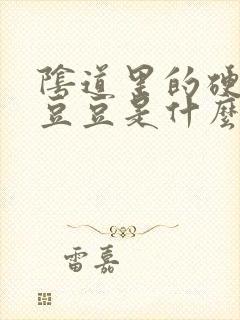 陰道里的硬
豆豆是什麼
雷嘉